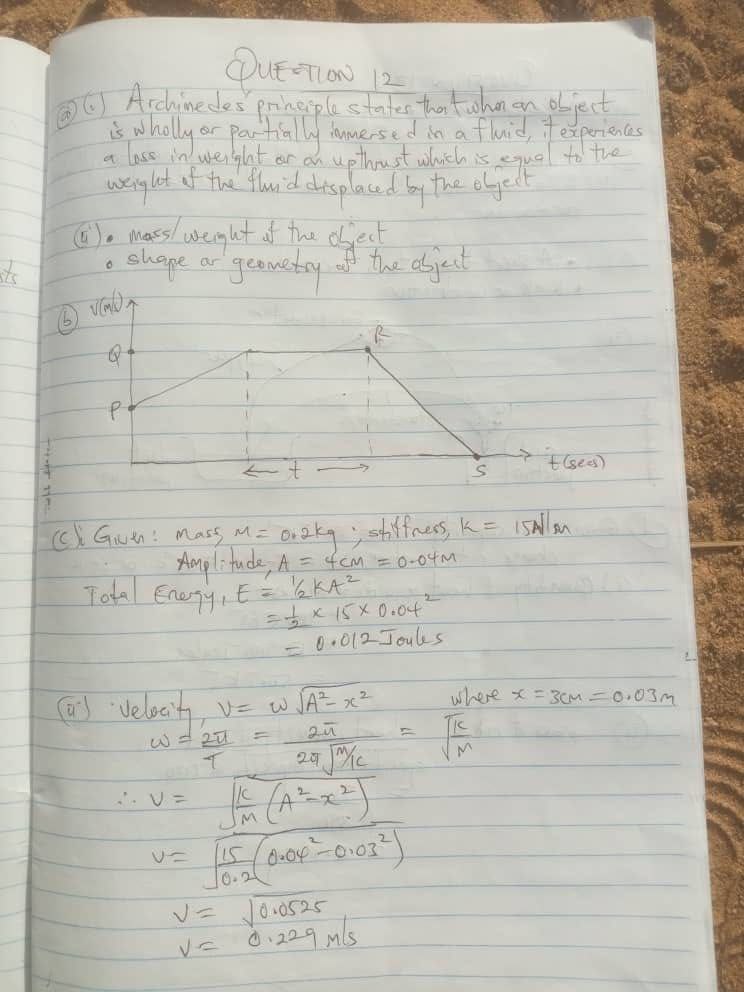 QUESTION 12
(a) (i) Archimedes' principle states that when an object
is wholly or partially immersed in a fluid, it experiences
a loss in weight or an upthrust which is equal to the
weight of the fluid displaced by the object
(ii) • mass/weight of the object
• shape or geometry of the object
(b) V(m/s)
Q
R
P
← t →
S
t(secs)
(c) i Given: mass, M = 0.2kg ; stiffness, K = 15N/m
Amplitude, A = 4cm = 0.04m
Total Energy, E = ½KA²
= ½ × 15 × 0.04²
= 0.012 Joules
(ii) Velocity, V = ω√(A² − x²) where x = 3cm = 0.03m
ω = 2π/T = 2π/(2π√(m/K)) = √(K/M)
∴ V = √(K/M (A² − x²))
V = √(15/0.2 (0.04² − 0.03²))
V = √0.0525
V = 0.229 m/s